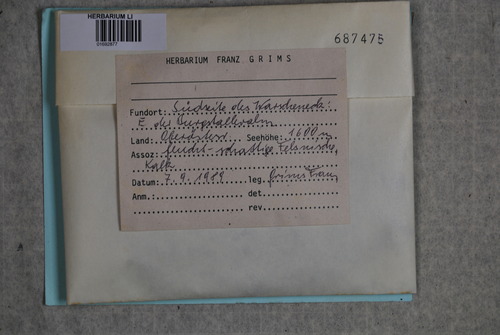 HERBARIUM LI
01692877
687475
HERBARIUM FRANZ GRIMS
Fundort: Südseite des Warschenecks:
E der Burgstallalm
Land: Oberösterr. Seehöhe: 1600 m
Assoz: feucht-schattige Felsnische,
Kalk
Datum: 7.9.1989 leg. Grims Franz
Anm.: det.
rev.